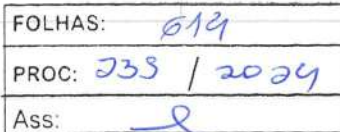 FOLHAS: 614
PROC: 239 / 2024
Ass: